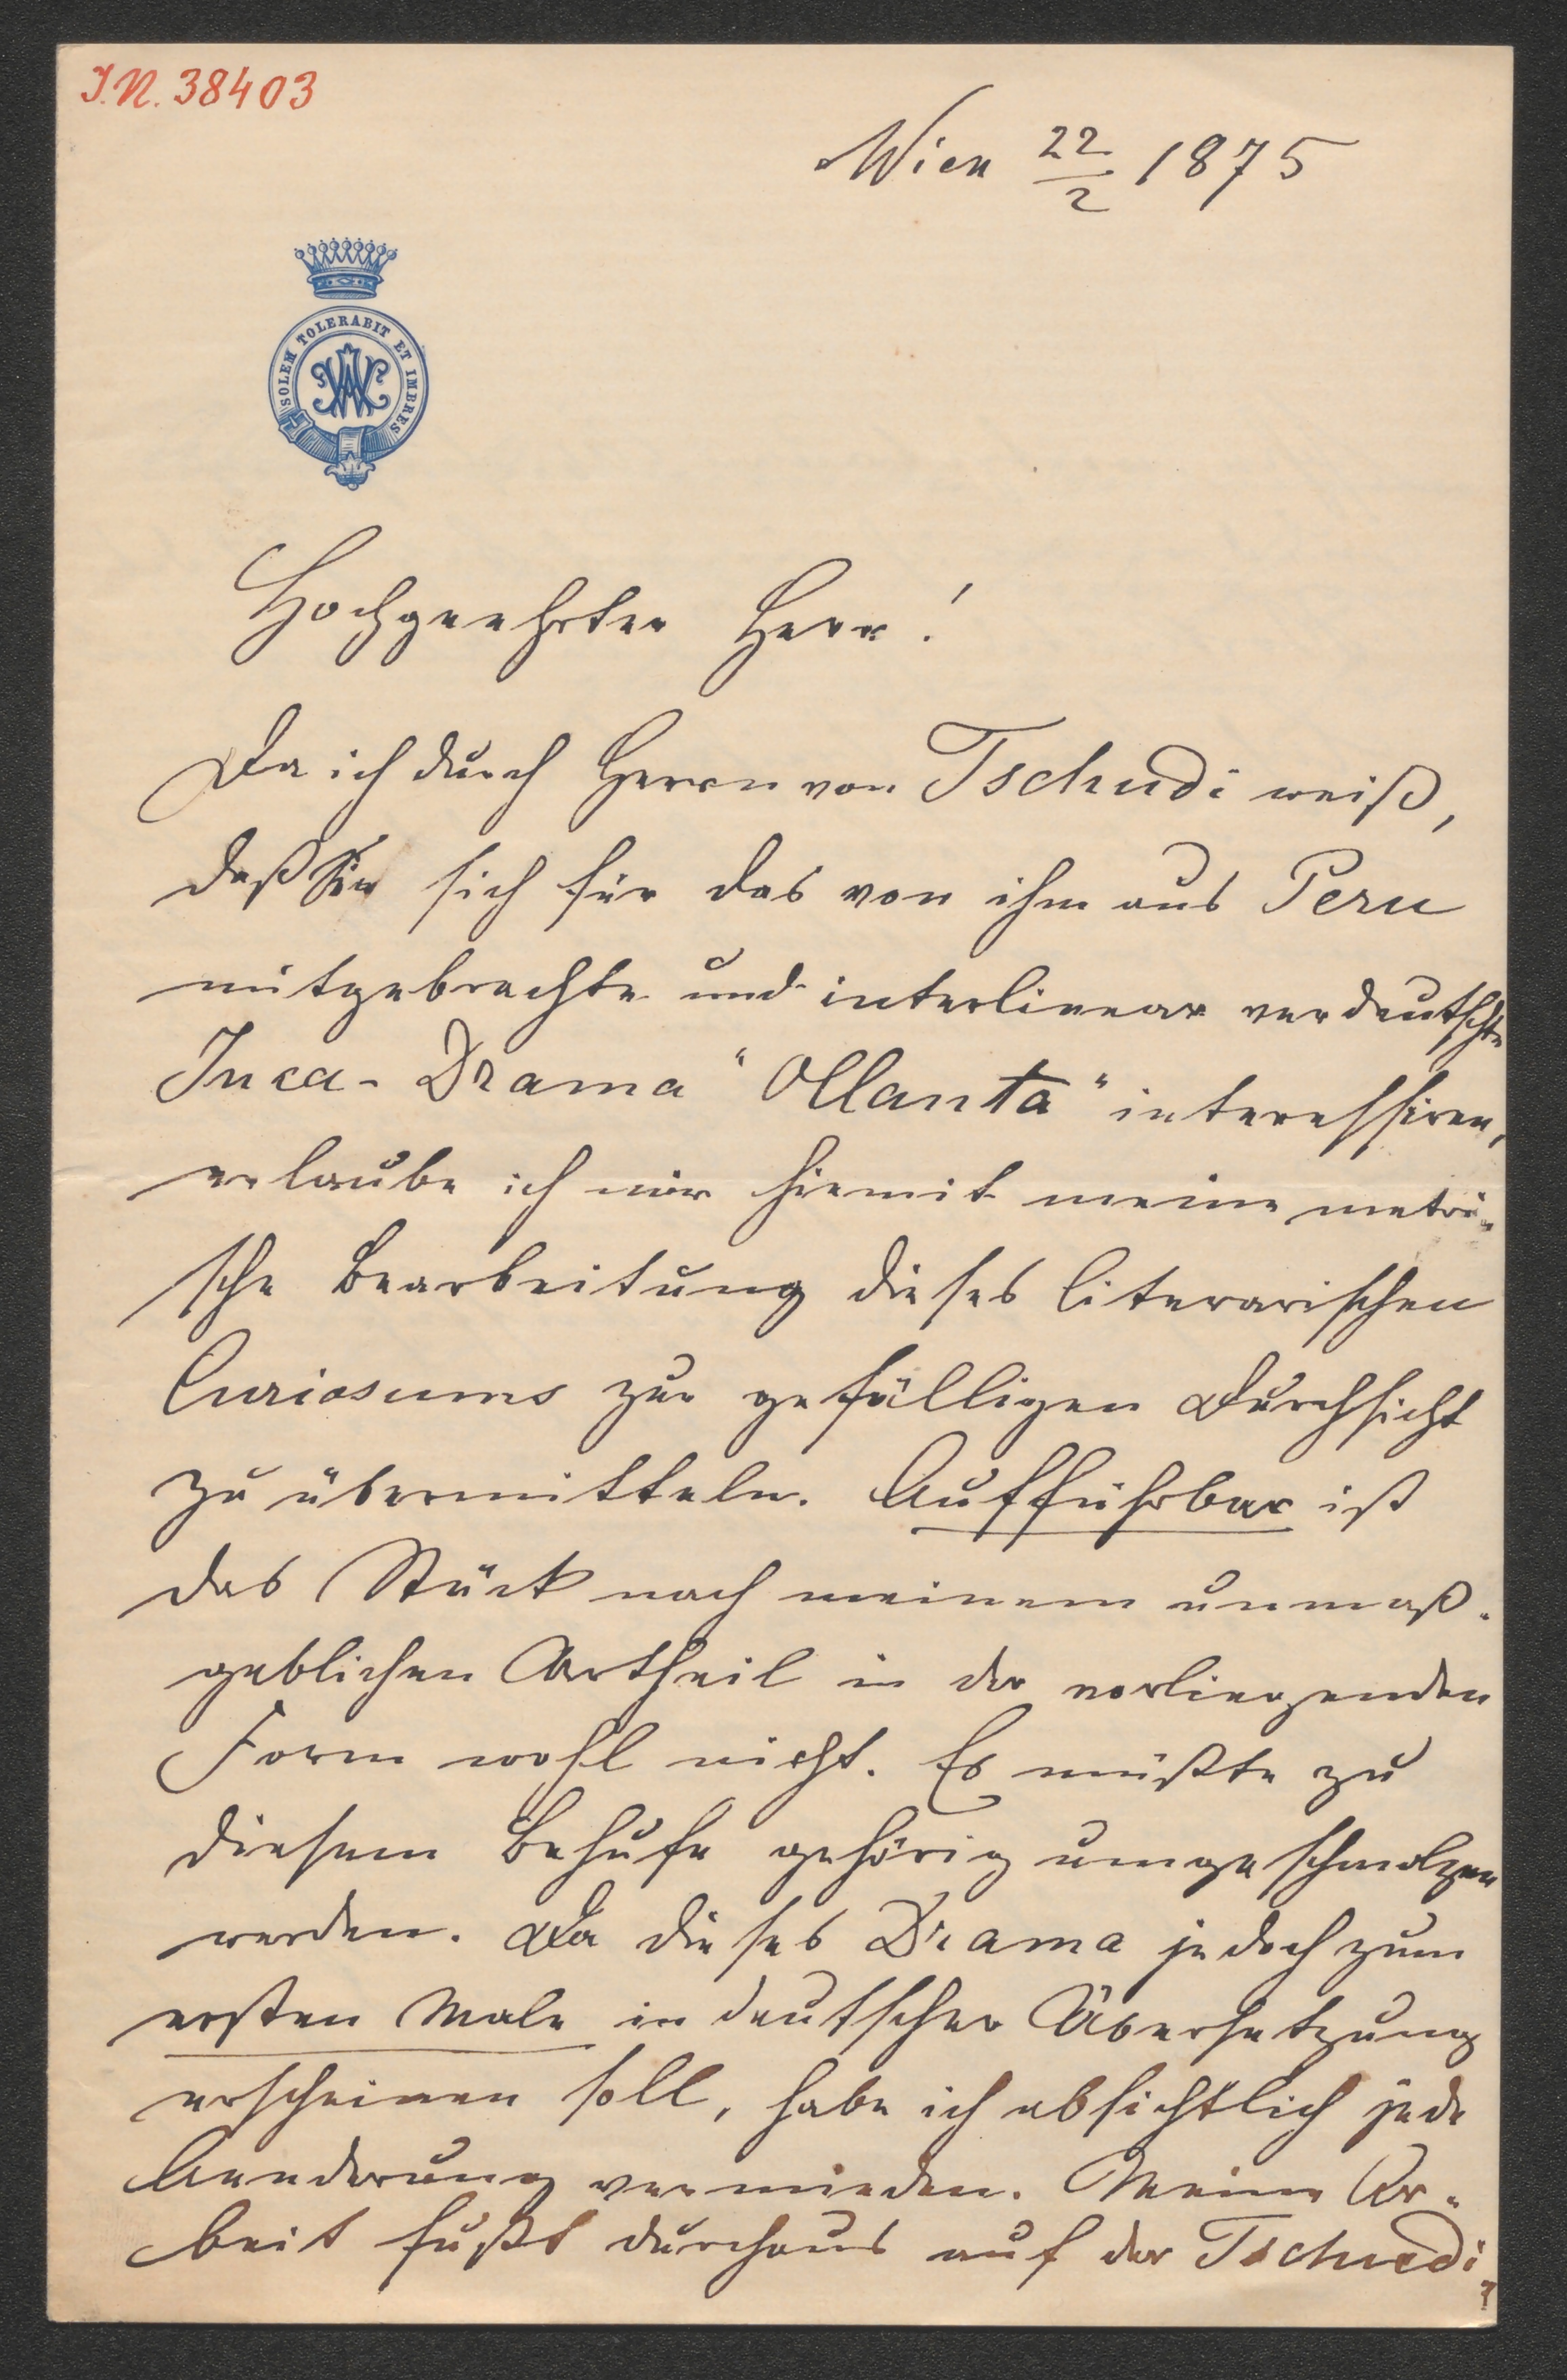 J.N. 38403
Wien 22/2 1875
SOLEM TOLERABIT ET IMBRES
Hochgeehrter Herr!
Da ich durch Herrn von Tschudi weiß,
daß Sie sich für das von ihm aus Peru
mitgebrachte und interlinear verdeutschte
Inca-Drama "Ollanta" interessiren,
erlaube ich mir hiemit meine metri-
sche Bearbeitung dieses literarischen
Curiosums zur gefälligen Durchsicht
zu übermitteln. Aufführbar ist
das Stück nach meinem unmaß-
geblichen Urtheil in der vorliegenden
Form wohl nicht. Es müßte zu
diesem Behufe gehörig umgeschmolzen
werden. Da dieses Drama jedoch zum
ersten Male in deutscher Übersetzung
erscheinen soll, habe ich absichtlich jede
Aenderung vermieden. Meine Ar-
beit fußt durchaus auf der Tschudi